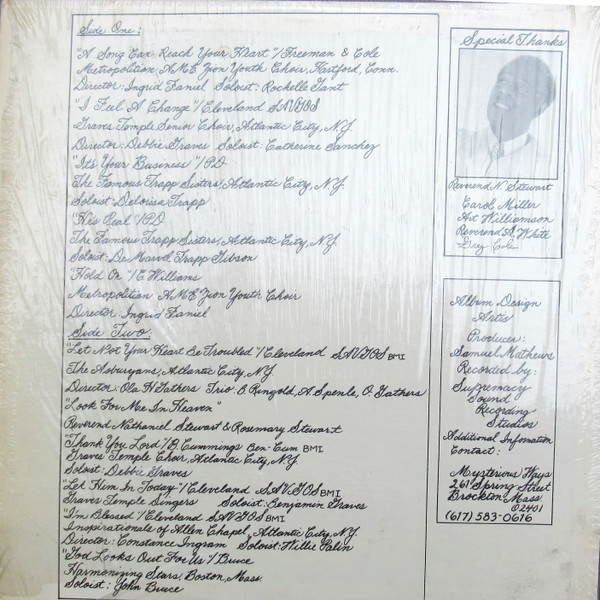 Side One:
"A Song Can Reach Your Heart"/Freeman & Cole
Metropolition A.M.E Zion Youth Choir, Hartford, Conn.
Director: Ingrid Faniel Soloist: Rochelle Gant
"I Feel A Change"/Cleveland SAVGOS
Graves Temple Senior Choir, Atlantic City, N.J.
Director: Debbie Graves Soloist: Catherine Sanchez
"It's Your Business"/P.D
The Famous Trapp Sisters, Atlantic City, N.J.
Soloist: Deloissa Trapp
"He's Real"/P.D
The Famous Trapp Sisters, Atlantic City, N.J.
Soloist: DeMarvel Trapp Gibson
"Hold On"/E. Williams
Metropolition A.M.E Zion Youth Choir
Director: Ingrid Faniel
Side Two:
"Let Not Your Heart Be Troubled"/Cleveland SAVGOS BMI
The Asburyans, Atlantic City, N.J.
Director: Ola H Gathers Trio: B. Ringold, A. Spenle, O. Gathers
"Look For Me In Heaven"
Reverend Nathaniel Stewart & Rosemary Stewart
"Thank You Lord"/B. Cummings Ben-Cum BMI
Graves Temple Choir, Atlantic City, N.J.
Soloist: Debbie Graves
"Let Him In Today"/Cleveland SAVGOS BMI
Graves Temple Singers Soloist: Benjamin Graves
"I'm Blessed"/Cleveland SAVGOS BMI
Inspirationals of Allen Chapel, Atlantic City, N.J.
Director: Constance Ingram Soloist: Willie Palin
"God Looks Out For Us"/Bruce
Harmonizing Stars, Boston, Mass.
Soloist: John Bruce
Special Thanks
Reverend N. Stewart
Carol Miller
Art Williamson
Reverend A. White
Greg Cole
Album Design
Artis
Producer:
Samuel Mathews
Recorded by:
Supremacy
Sound
Recording
Studios
Additional Infomation
Contact:
Mysterious Ways
261 Spring Street
Brockton, Mass.
02401
(617) 583-0616